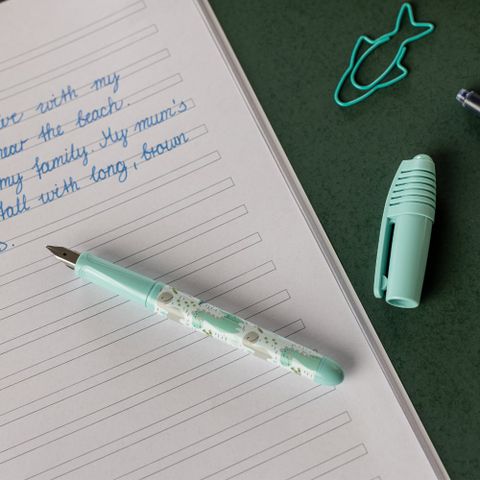 with my
near the beach.
my family. My mum's
tall with long, brown